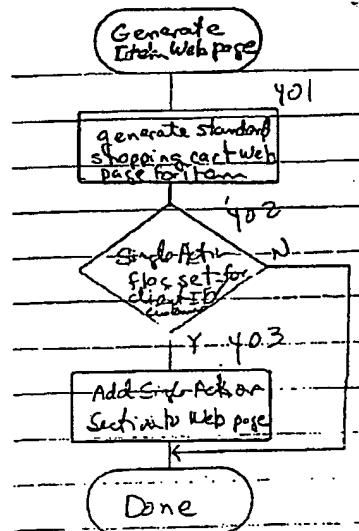 Generate
Item Web page
401
generate standard
shopping cart Web
page for item
402
Single-Action
flag set for
client ID
N
Y 403
Add Single-Action
Section to Web page
Done